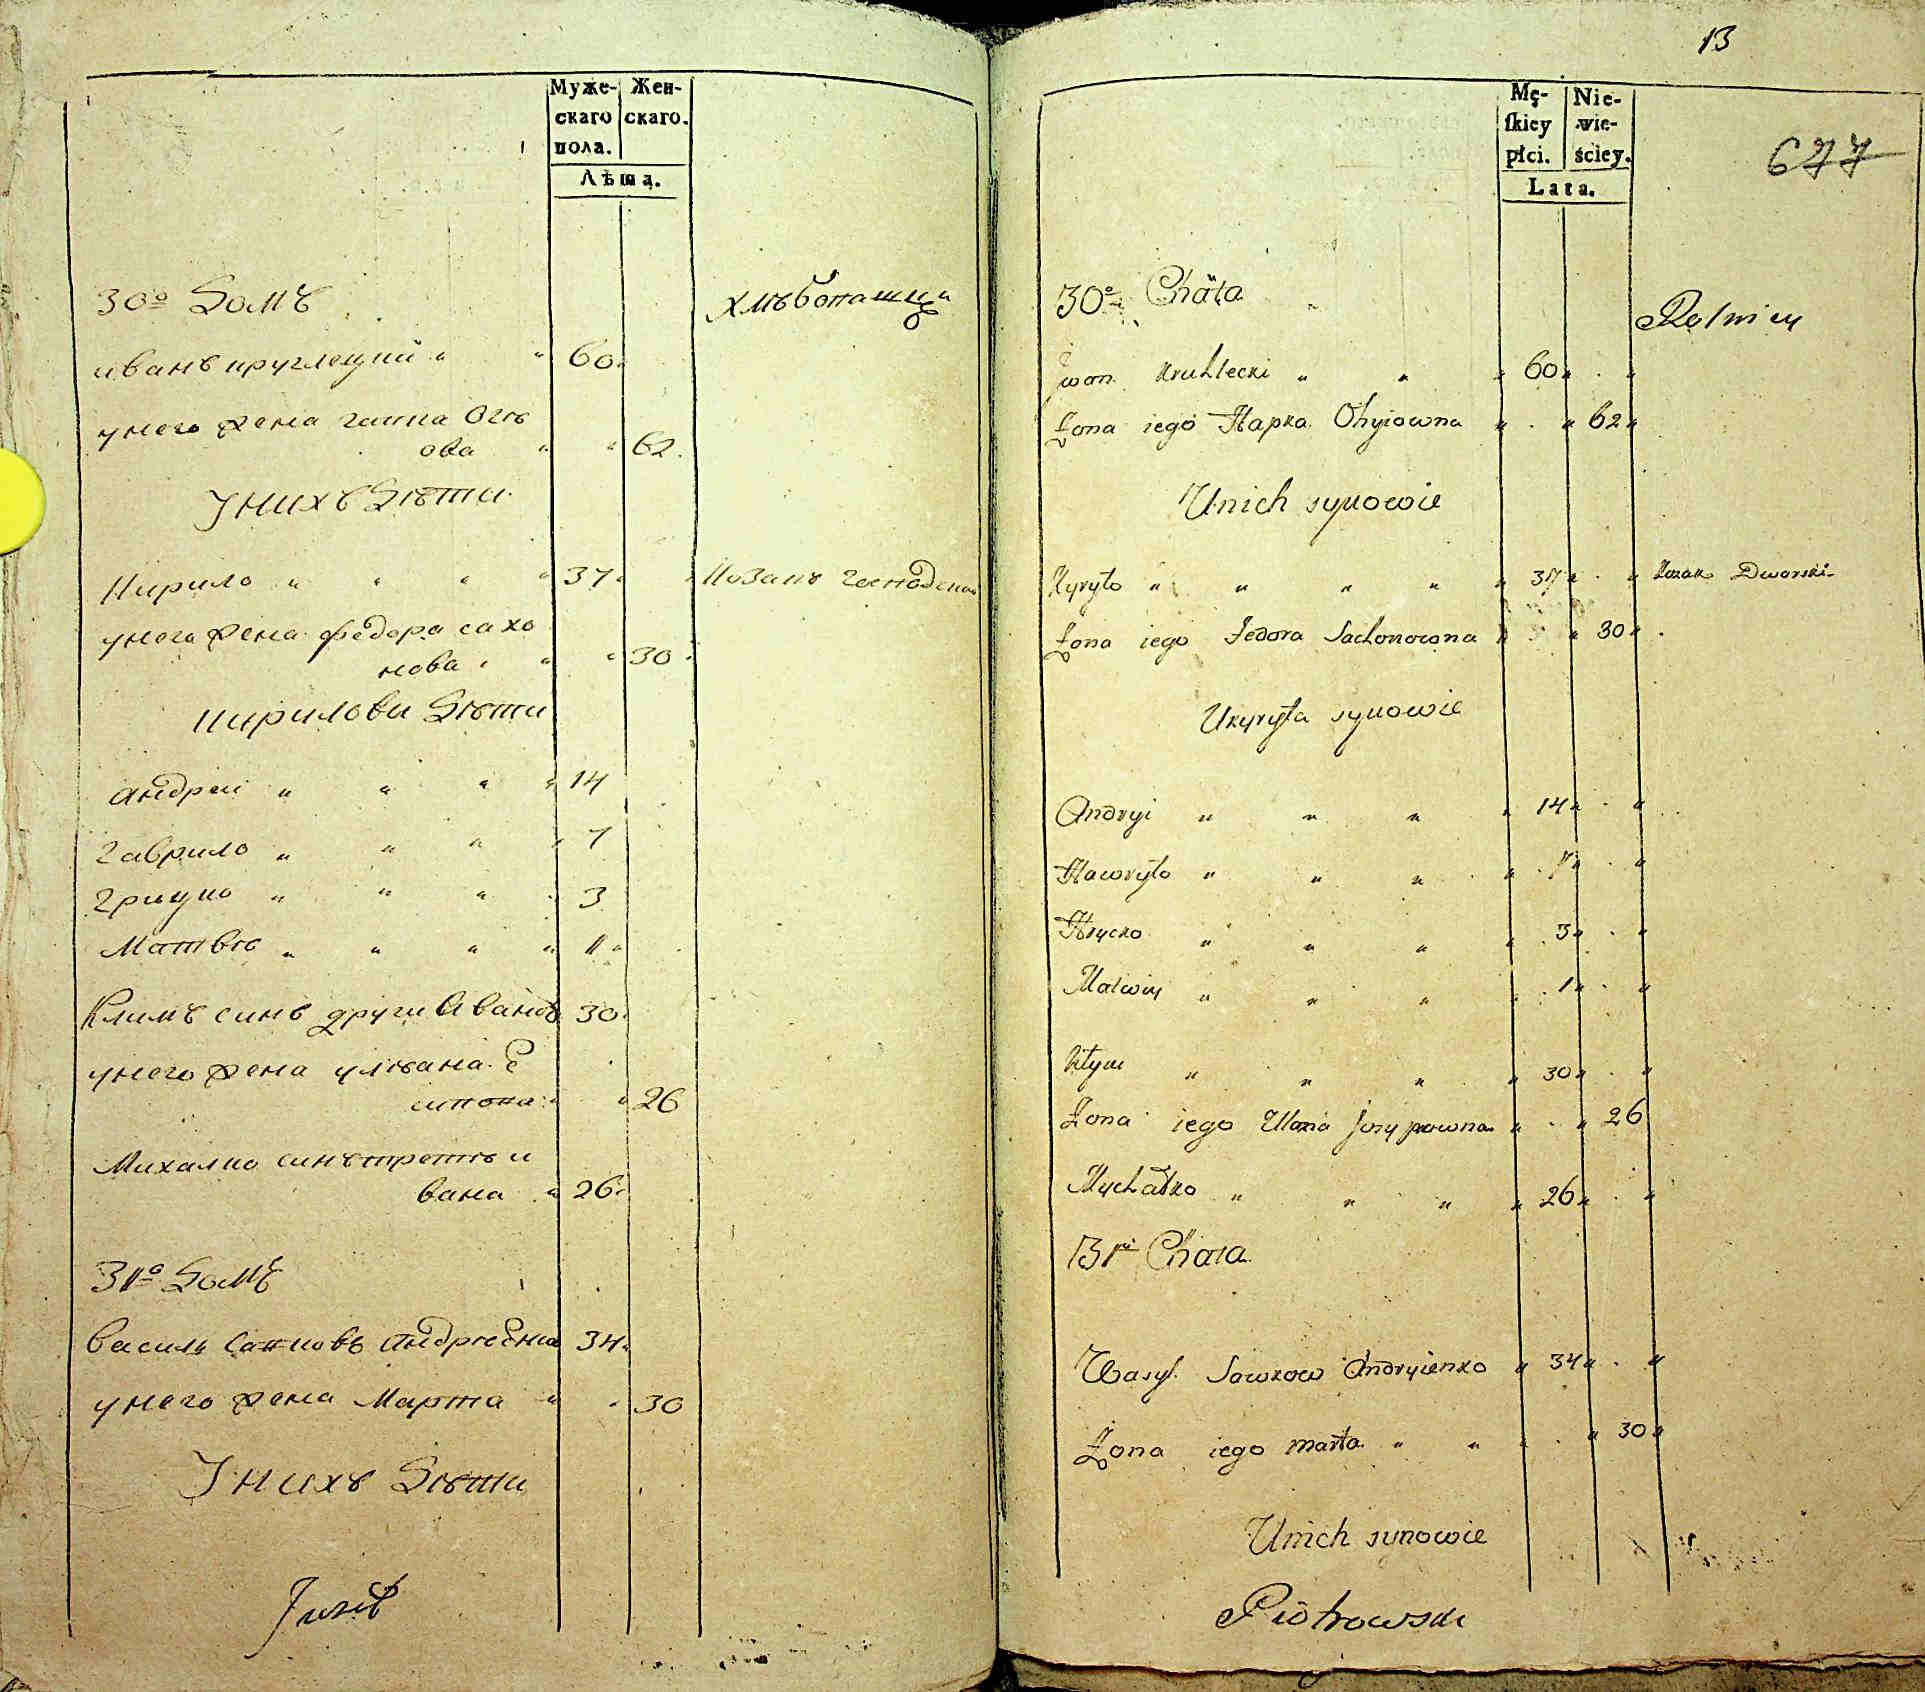 Муже- Жен-
скаго скаго.
пола.
Лѣта.
30º Домъ
хлѣбопашци
иванъ круглецкий " " 60"
унего жена гапка Оги
ова " " 62
Унихъ Дѣти
Кирило " " " " 37" " Козакъ господской
унего жена федора сахо
нова " " " 30
кирилови Дѣти
андреи " " " " 14
гаврило " " " " 7
грицко " " " 3
Матвѣ " " " " 1"
Климъ синъ други Ивановъ 30"
унего жена улияна
" " 26
Михалко синъ третѣ и
вана " 26"
31º Домъ
Василь Савковъ Андрѣенко 34"
унего жена Марта " " 30
Унихъ Дѣти
13
Mę- Nie-
skiey wie-
płci. ściey.
Lata.
677
30ª Chata
Rolnicy
Jwan Kruhlecki " " " 60" . "
Żona iego Hapka Ohyiowna " . " 62"
Unich synowie
Kyryło " " " " " 37" . " Kozak Dworski
Żona iego Fedora Sachonowna " " 30" .
Ukyryła synowie
Andryi " " " " 14" . "
Hawryło " " " " 7" . "
Hrycko " " " " 3" . "
Matwiy " " " " 1" . "
Kłym " " " " 30" . "
Żona iego Ulana Josypowna " . " 26
Mychałko " " " " 26" . "
31 Chata
Wasyl Sawkow Andryienko " 34" . "
Żona iego marta " " " . " 30"
Unich synowie
Piotrowski